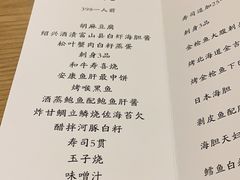 398一人前
胡麻豆腐
绍兴酒渍富山县白虾海胆酱
松叶蟹肉白虾蒸蛋
刺身3品
和牛寿喜烧
安康鱼肝最中饼
烤喉黑鱼
酒蒸鲍鱼配鲍鱼肝酱
炸甘鲷立鳞烧佐海苔欠
醋拌河豚白籽
寿司5贯
玉子烧
味噌汁
寿司追加25
刺身3品
金枪鱼大腹
烤北海道金
烤金枪鱼下
日本海胆
剥皮鱼配
海胆天妇
鳕鱼白